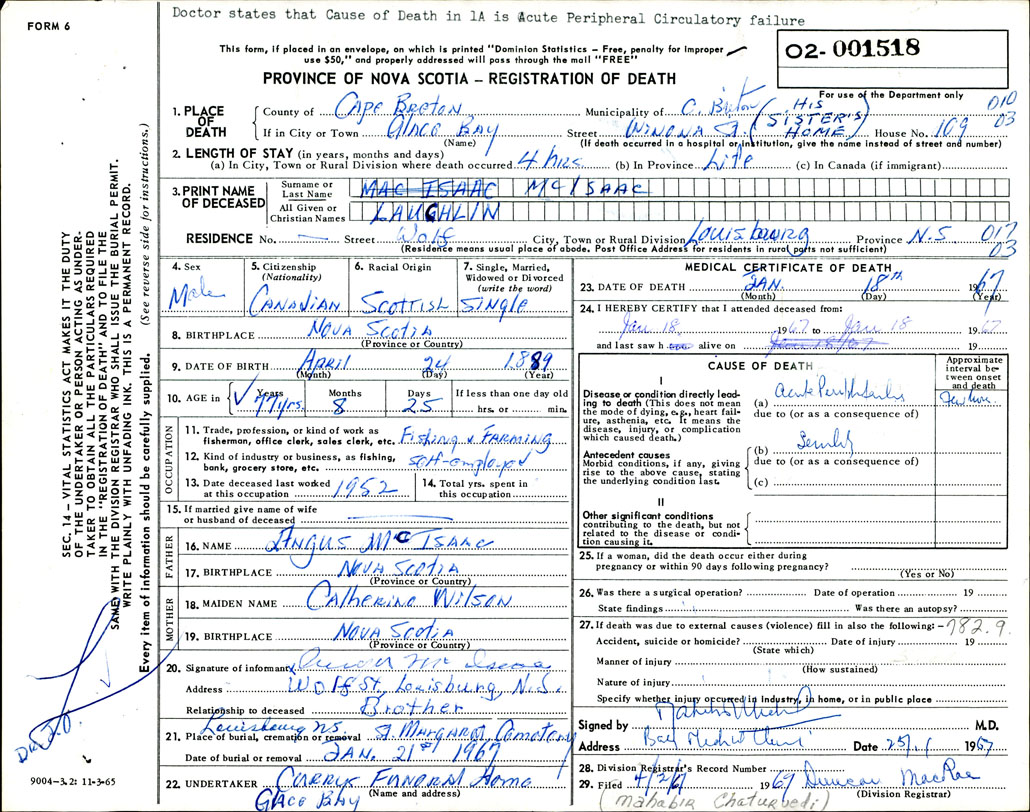 Doctor states that Cause of Death in 1A is Acute Peripheral Circulatory failure
FORM 6
This form, if placed in an envelope, on which is printed "Dominion Statistics – Free, penalty for improper
use $50," and properly addressed will pass through the mail "FREE"
02- 001518
PROVINCE OF NOVA SCOTIA – REGISTRATION OF DEATH
For use of the Department only
010
03
1. PLACE OF DEATH
County of Cape Breton Municipality of C. Breton (HIS SISTER'S HOME)
If in City or Town Glace Bay Street Winona St. House No. 109
(Name) (If death occurred in a hospital or institution, give the name instead of street and number)
2. LENGTH OF STAY (in years, months and days)
(a) In City, Town or Rural Division where death occurred 4 hrs (b) In Province Life (c) In Canada (if immigrant)
3. PRINT NAME OF DECEASED
Surname or Last Name MAC ISAAC McISAAC
All Given or Christian Names LAUCHLIN
RESIDENCE No. — Street Wolf City, Town or Rural Division Louisbourg Province N.S. 017
03
(Residence means usual place of abode. Post Office Address for residents in rural parts not sufficient)
4. Sex Male
5. Citizenship (Nationality) Canadian
6. Racial Origin Scottish
7. Single, Married, Widowed or Divorced (write the word) Single
8. BIRTHPLACE Nova Scotia
(Province or Country)
9. DATE OF BIRTH April 24 1889
(Month) (Day) (Year)
10. AGE in Years Months Days If less than one day old
77 yrs. 8 25 hrs. or min.
OCCUPATION
11. Trade, profession, or kind of work as
fisherman, office clerk, sales clerk, etc. Fishing & Farming
12. Kind of industry or business, as fishing,
bank, grocery store, etc. self-employed
13. Date deceased last worked
at this occupation 1952
14. Total yrs. spent in
this occupation
15. If married give name of wife
or husband of deceased
FATHER
16. NAME Angus McIsaac
17. BIRTHPLACE Nova Scotia
(Province or Country)
MOTHER
18. MAIDEN NAME Catherine Wilson
19. BIRTHPLACE Nova Scotia
(Province or Country)
20. Signature of informant
Address Wolf St, Louisburg, N.S.
Relationship to deceased Brother
Louisbourg NS
21. Place of burial, cremation or removal St. Margaret Cemetery
Date of burial or removal JAN. 21st 1967
22. UNDERTAKER Currys Funeral Home
Glace Bay (Name and address)
MEDICAL CERTIFICATE OF DEATH
23. DATE OF DEATH JAN. 18th 1967
(Month) (Day) (Year)
24. I HEREBY CERTIFY that I attended deceased from:
Jan 18, 1967 to Jan 18 1967
and last saw h alive on Jan 18/67 19
CAUSE OF DEATH
Approximate interval between onset and death
I
Disease or condition directly leading to death (This does not mean
the mode of dying, e.g., heart failure, asthenia, etc. It means the
disease, injury, or complication
which caused death.)
(a)
due to (or as a consequence of)
Antecedent causes
Morbid conditions, if any, giving
rise to the above cause, stating
the underlying condition last.
(b) Senility
due to (or as a consequence of)
(c)
II
Other significant conditions
contributing to the death, but not
related to the disease or condition causing it.
25. If a woman, did the death occur either during
pregnancy or within 90 days following pregnancy?
(Yes or No)
26. Was there a surgical operation? Date of operation 19
State findings Was there an autopsy?
27. If death was due to external causes (violence) fill in also the following: – 782.9.
Accident, suicide or homicide? Date of injury 19
(State which)
Manner of injury
(How sustained)
Nature of injury
Specify whether injury occurred in Industry, in home, or in public place
Signed by M.D.
Address Date 25/1 1967
28. Division Registrar's Record Number
29. Filed 4/2/67 1967 Duncan MacRae
(Division Registrar)
(Mahabir Chaturvedi)
SEC. 14 – VITAL STATISTICS ACT MAKES IT THE DUTY
OF THE UNDERTAKER OR PERSON ACTING AS UNDERTAKER TO OBTAIN ALL THE PARTICULARS REQUIRED
IN THE "REGISTRATION OF DEATH" AND TO FILE THE
SAME WITH THE DIVISION REGISTRAR WHO SHALL ISSUE THE BURIAL PERMIT.
WRITE PLAINLY WITH UNFADING INK. THIS IS A PERMANENT RECORD.
Every item of information should be carefully supplied. (See reverse side for instructions.)
9004–3.2: 11-3-65